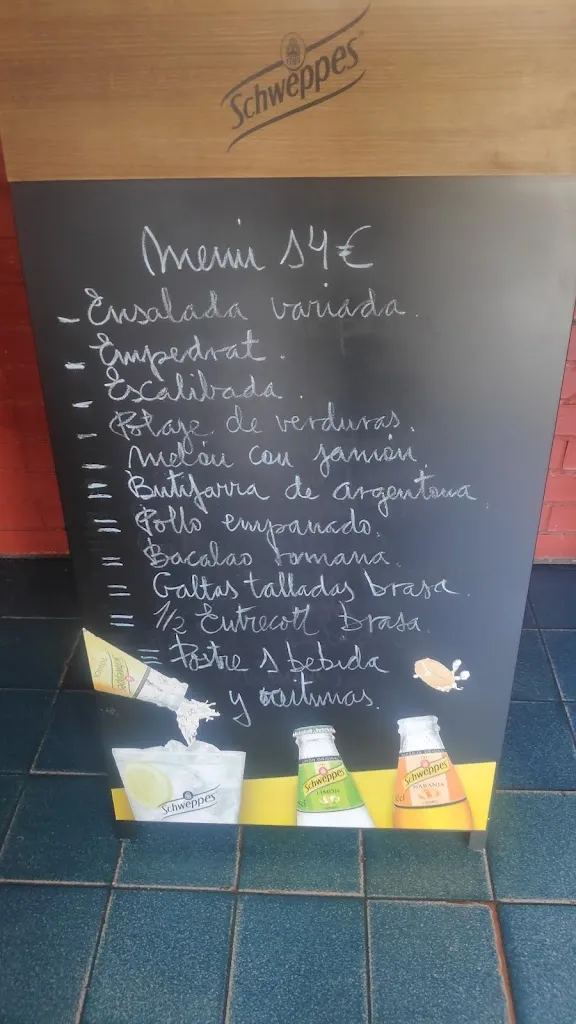 Schweppes
Menu 14€
- Ensalada variada.
- Empedrat.
- Escalibada.
- Potaje de verduras.
- Melón con jamón.
= Butifarra de argentona
= Pollo empanado.
= Bacalao romana.
= Galtas talladas brasa.
= 1/2 Entrecott brasa.
= Postre 1 bebida
y
Schweppes
Schweppes
LIMÓN
Schweppes
NARANJA
Schweppes